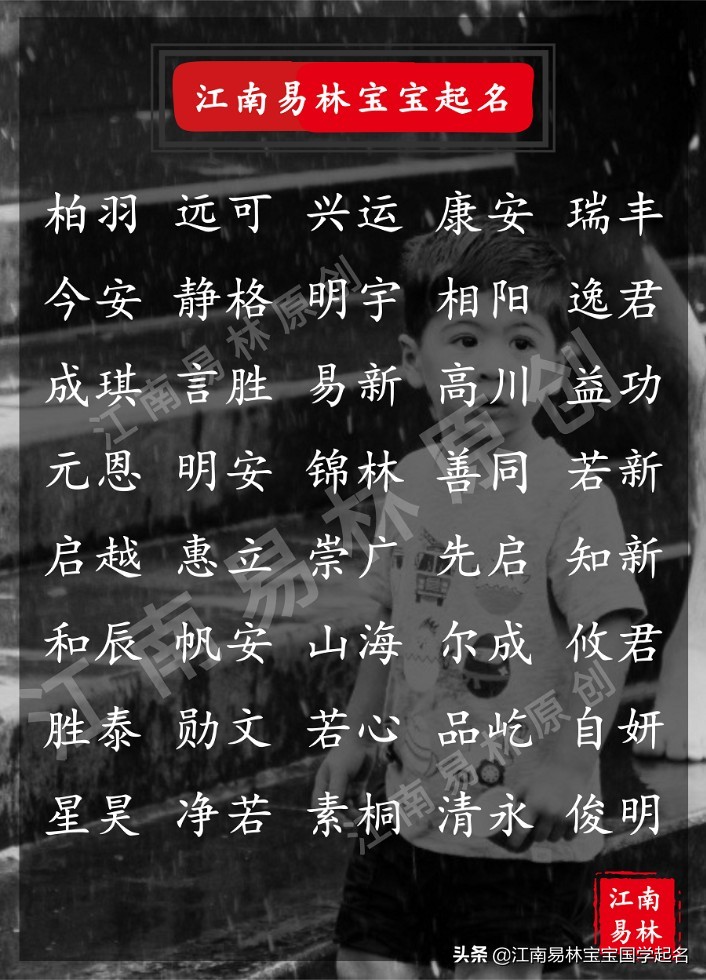 江南易林宝宝起名
柏羽 远可 兴运 康安 瑞丰
今安 静格 明宇 相阳 逸君
成琪 言胜 易新 高川 益功
元恩 明安 锦林 善同 若新
启越 惠立 崇广 先启 知新
和辰 帆安 山海 尔成 攸君
胜泰 勋文 若心 品屹 自妍
星昊 净若 素桐 清永 俊明
江南易林原创
江南易林原创
江南易林原创
江南
易林
头条 @江南易林宝宝国学起名